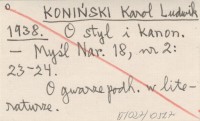 KONIŃSKI Karol Ludwik
1938. O styl i kanon.
— Myśl Nar. 18, nr 2:
23-24.
O gwarze podh. w lite-
raturze.